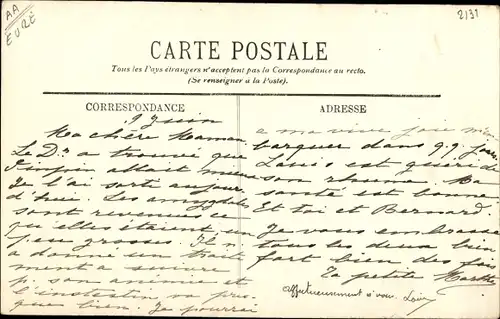 AA
EURE
2131
CARTE POSTALE
Tous les Pays étrangers n'acceptent pas la Correspondance au recto.
(Se renseigner à la Poste).
CORRESPONDANCE
9 Juin
Ma chère Maman
Le Dr a trouvé que
allait mieux
Je l'ai sorti aujour
d'hui. Les amygdales
sont revenues ce
qu'elles étaient un
peu grosses. Il m
a donné un traite
ment à suivre
p. son anémie et
l'intestin va pres
que bien. Je pourrai
ADRESSE
a ma vive joie
barquer dans q.q. jours
Louis est guéri de
son rhume. Ma
santé est bonne
Et toi et Bernard.
Je vous embrasse
tous les deux bien
fort bien des fois
Ta petite Marthe
Affectueusement à vous. Louis